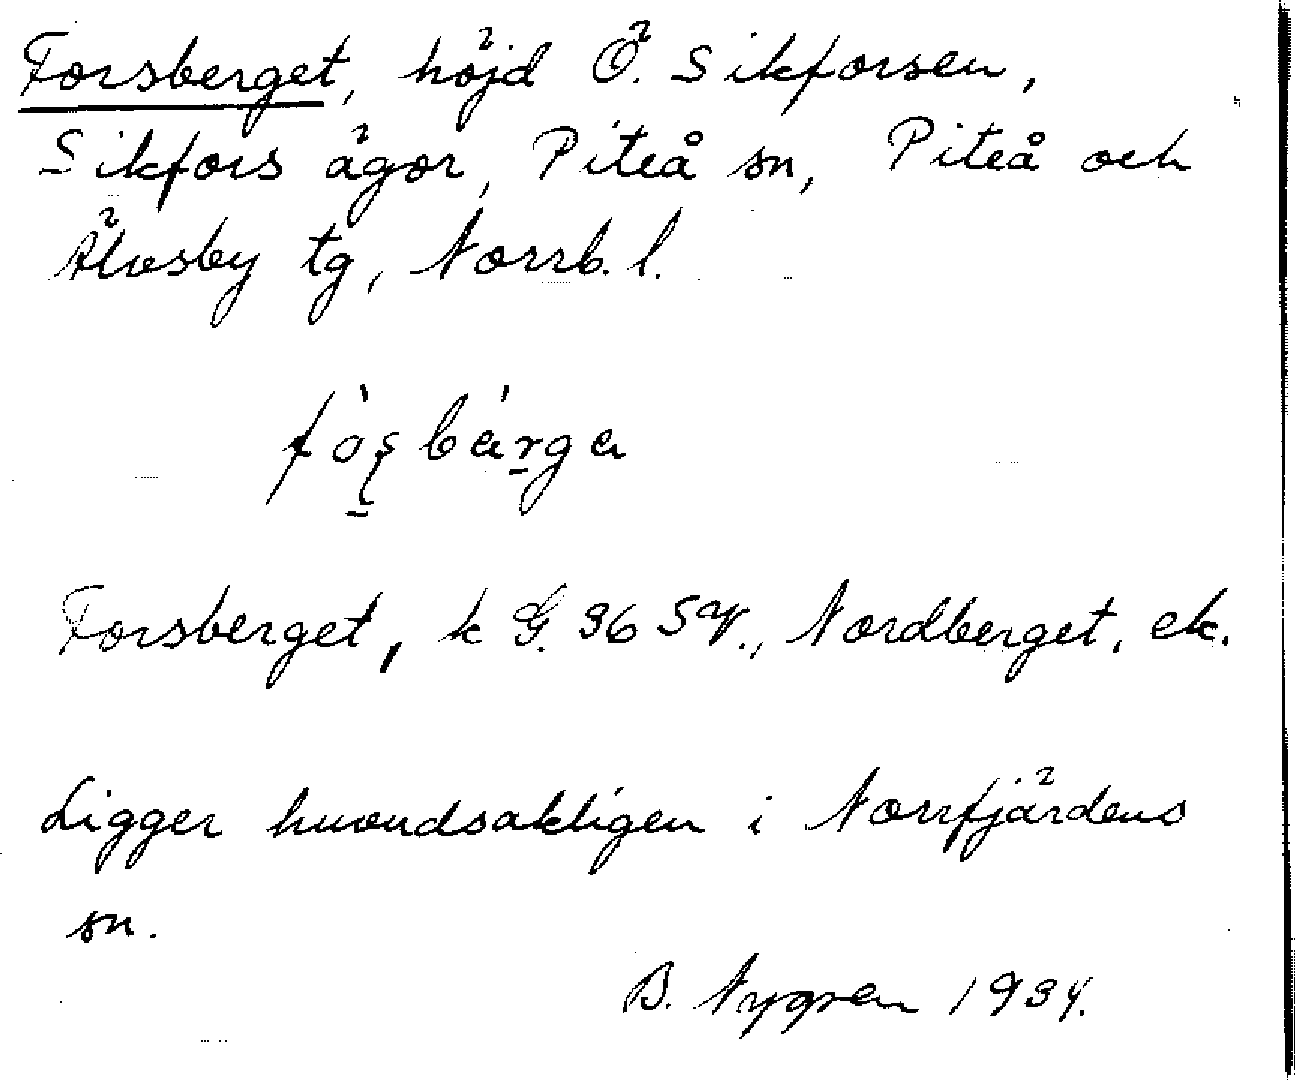 Forsberget, höjd Ö. Sikforsen,
Sikfors ägor, Piteå sn, Piteå och
Älvsby tg, Norrb. l.
Forsberget, k G. 36 Sv., Nordberget, ek.
Ligger huvudsakligen i Norrfjärdens
sn.
B. Nygren 1934.